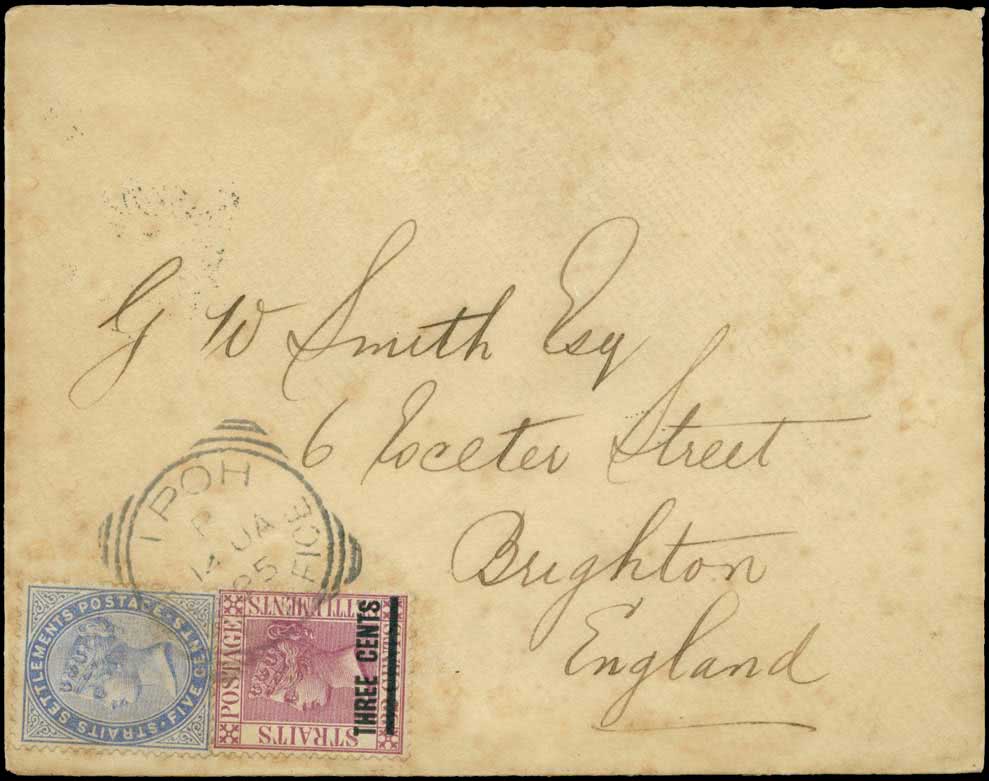 G W Smith Esq
6 Exeter Street
Brighton
England
IPOH
P
14 JA
95
FICE
STRAITS SETTLEMENTS POSTAGE · FIVE CENTS ·
POSTAGE
STRAITS
TTLEMENTS
THREE CENTS